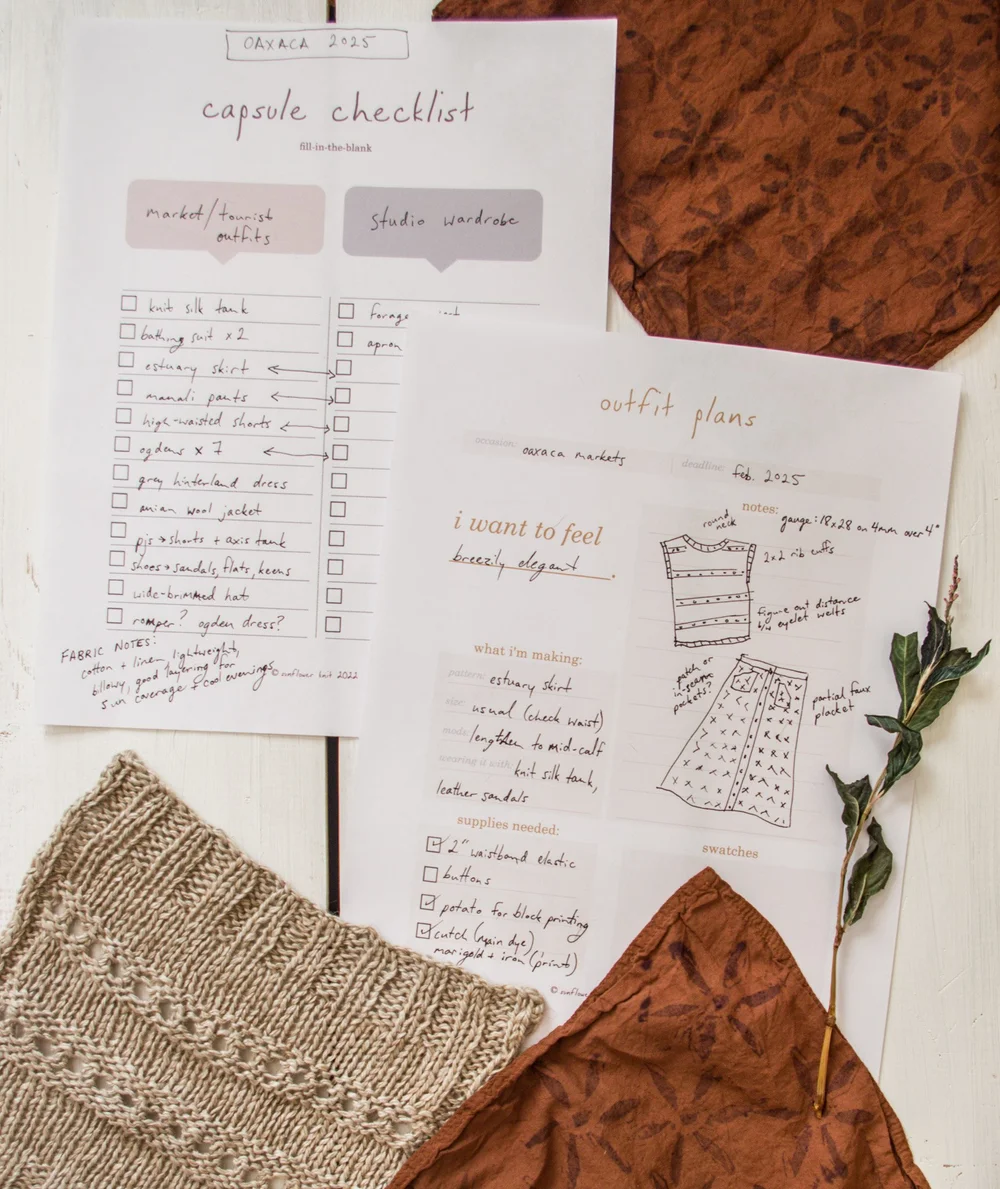 OAXACA 2025
capsule checklist
fill-in-the-blank
market/tourist
outfits
knit silk tank
bathing suit x 2
estuary skirt
manali pants
high-waisted shorts
ogdens x 7
grey hinterland dress
anian wool jacket
pjs → shorts + axis tank
shoes → sandals, flats, keens
wide-brimmed hat
romper? ogden dress?
FABRIC NOTES:
cotton + linen, lightweight,
billowy, good layering for
sun coverage + cool evenings
© sunflower knit 2022
studio wardrobe
forage
apron
outfit plans
occasion: oaxaca markets
deadline: feb. 2025
i want to feel
breezily elegant.
what i'm making:
pattern: estuary skirt
size: usual (check waist)
mods: lengthen to mid-calf
wearing it with: knit silk tank,
leather sandals
supplies needed:
2" waistband elastic
buttons
potato for block printing
cutch (main dye)
marigold + iron (prints)
© sunflower
notes:
gauge: 18x28 on 4mm over 4"
round
neck
2x2 rib cuffs
figure out distance
b/w eyelet welts
patch or
in-seam
pockets?
partial faux
placket
swatches